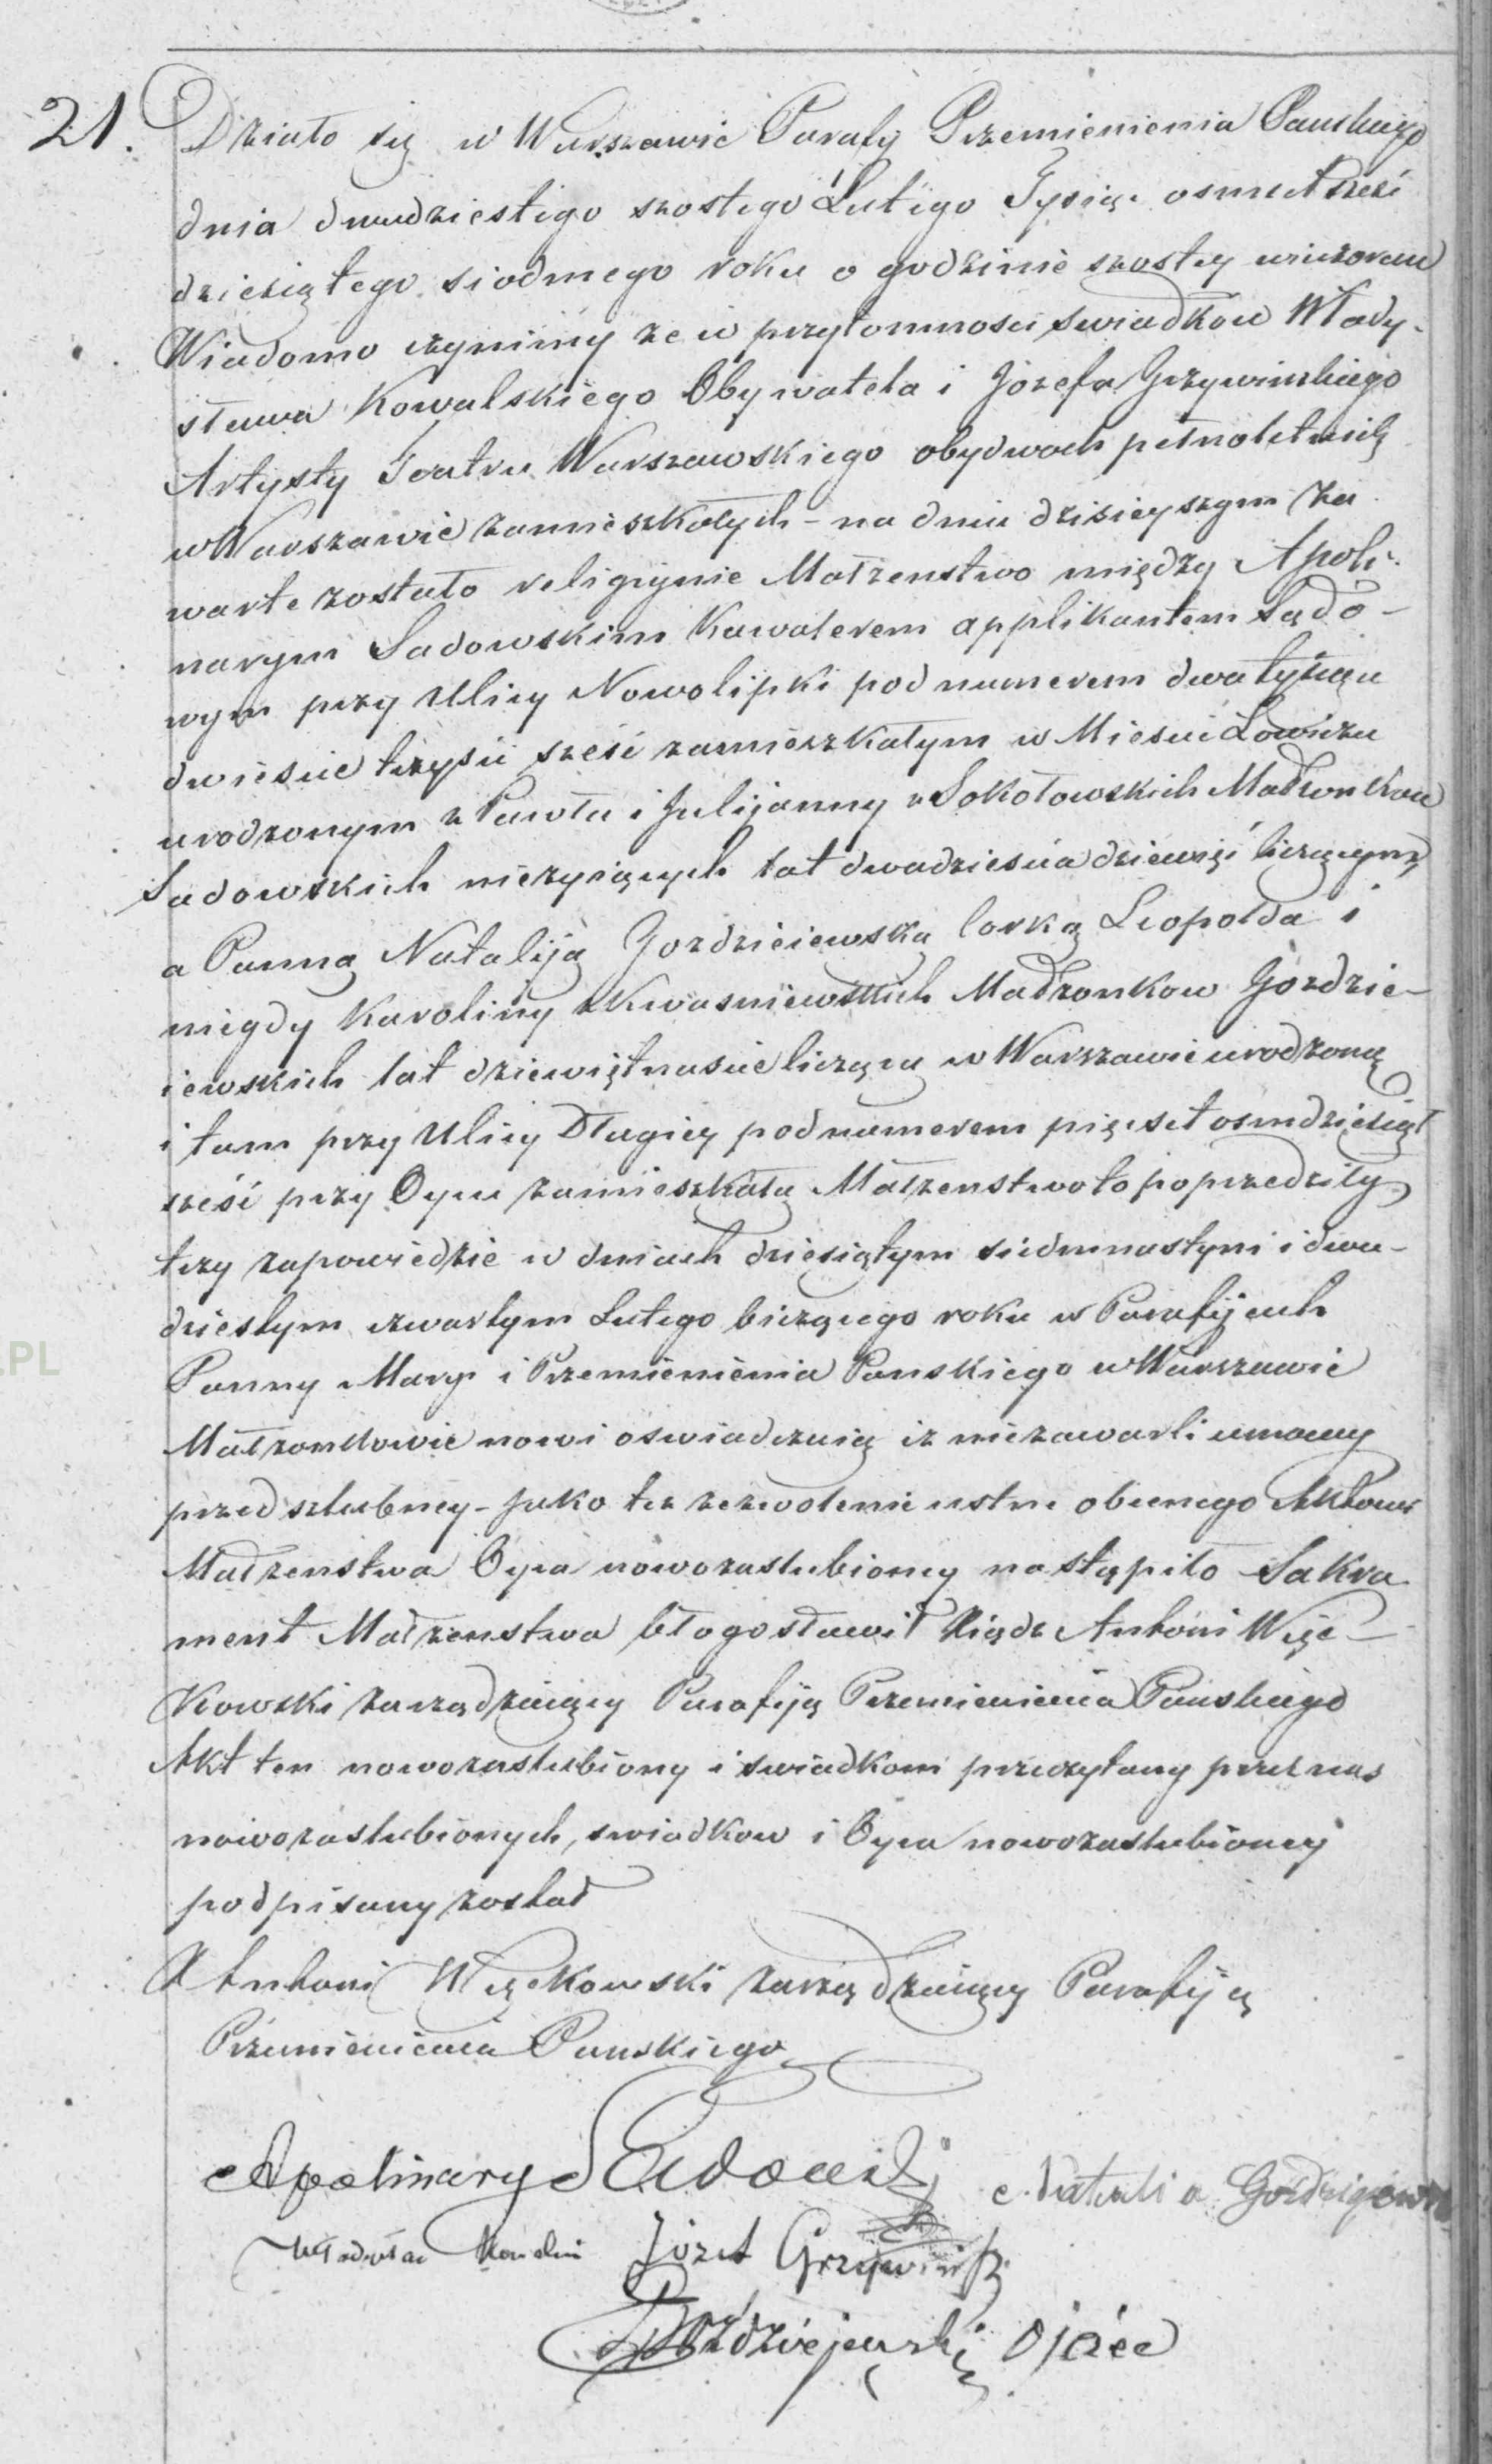 21.
Działo się w Warszawie Parafij Przemienienia Panskiego
dnia dwudziestego szostego Lutego Tysiąc osmset sześć
dziesiątego siodmego roku o godzinie szostey wieczorem
Wiadomo czynimy ze w przytomnosci swiadkow Włady-
sława Kowalskiego Obywatela i Jozefa Grzywinskiego
Artysty Teatru Warszawskiego obydwoch pełnoletnich
w Warszawie zamieszkałych - na dniu dzisieyszym za
warte zostało religijnie Małzenstwo między Apoli-
narym Sadowskim Kawalerem applikantem Sądo-
wym przy Ulicy Nowolipki pod numerem dwatysiące
dwiescie trzysci sześć zamieszkałym w Miescie Łowiczu
urodzonym z Pawła i Julijanny z Sokołowskich Małzonkow
Sadowskich niezyiących lat dwadziescia dziewięć liczącym,
a Panną Nataliją Gozdzieiewską Corką Leopolda i
niegdy Karoliny z Kwasniewskich Małzonkow Gozdzie-
iewskich lat dziewiętnascie liczącą w Warszawie urodzoną
i tam przy Ulicy Długiey pod numerem pięcset osmdziesiąt
sześć przy Oycu zamieszkałą Małzenstwo to poprzedziły
trzy zapowiedzie w dniach dziesiątym siedmnastym i dwu-
dziestym czwartym Lutego biezącego roku w Parafijach
Panny Maryi i Przemienienia Panskiego w Warszawie
Małzonkowie nowi oswiadczaią iz niezawarli umowy
przedszlubney - jako tez zezwolenie ustne obecnego Aktowi
Małzenstwa Oyca nowozaslubioney nastąpiło Sakra
ment Małzenstwa błogosławił Xiądz Antoni Więc-
kowski zarządzaiący Parafiją Przemienienia Panskiego
Akt ten nowozaslubiony i swiadkom przeczytany przez nas
nowozaslubionych, swiadkow i Oyca nowozaslubioney
podpisany został
X Antoni Więckowski zarządzaiący Parafiją
Przemienienia Panskiego
Apolinary Sadowski Natalia
Józef Grzywiński
Gozdziejewski Ojciec
PL